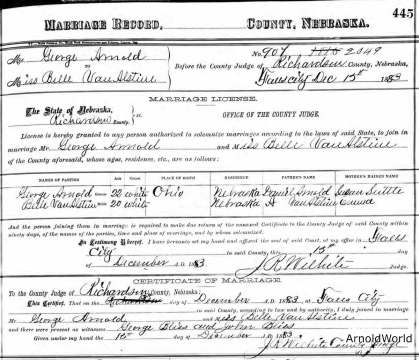 445
MARRIAGE RECORD, COUNTY, NEBRASKA.
Mr. George Arnold
to
Miss Belle VanAlstine
No. 907 2049
Before the County Judge of Richardson County, Nebraska,
Falls City Dec 15th 1883
MARRIAGE LICENSE.
The State of Nebraska,
Richardson County. ss.
OFFICE OF THE COUNTY JUDGE.
License is hereby granted to any person authorized to solemnize marriages according to the laws of said State, to join in
marriage Mr. George Arnold and Miss Belle VanAlstine
of the County aforesaid, whose ages, residence, etc., are as follows:
NAMES OF PARTIES AGE COLOR PLACE OF BIRTH RESIDENCE FATHER'S NAME MOTHER'S MAIDEN NAME
George Arnold 22 white Ohio Nebraska Daniel Arnold Susan
Belle VanAlstine 20 white Nebraska VanAlstine
And the person joining them in marriage is required to make due return of the annexed Certificate to the County Judge of said County within
ninety days, of the names of the parties, time and place of marriage, and by whom solemnized.
In Testimony Whereof, I have hereunto set my hand and affixed the seal of said Court, at my office in Falls
City in said County, this 15th
day of December A.D. 1883
J.R. Wilhite Judge.
CERTIFICATE OF MARRIAGE.
To the County Judge of Richardson County, Nebraska:
This Certifies, That on the day of December A.D. 1883 at Falls City
in said County, according to law and by authority, I duly joined in marriage
Mr. George Arnold and Miss Belle VanAlstine
and there were present as witnesses George Bliss and John Bliss
Given under my hand the 15th day of December A.D. 1883
J.R. Wilhite County Judge
ArnoldWorld